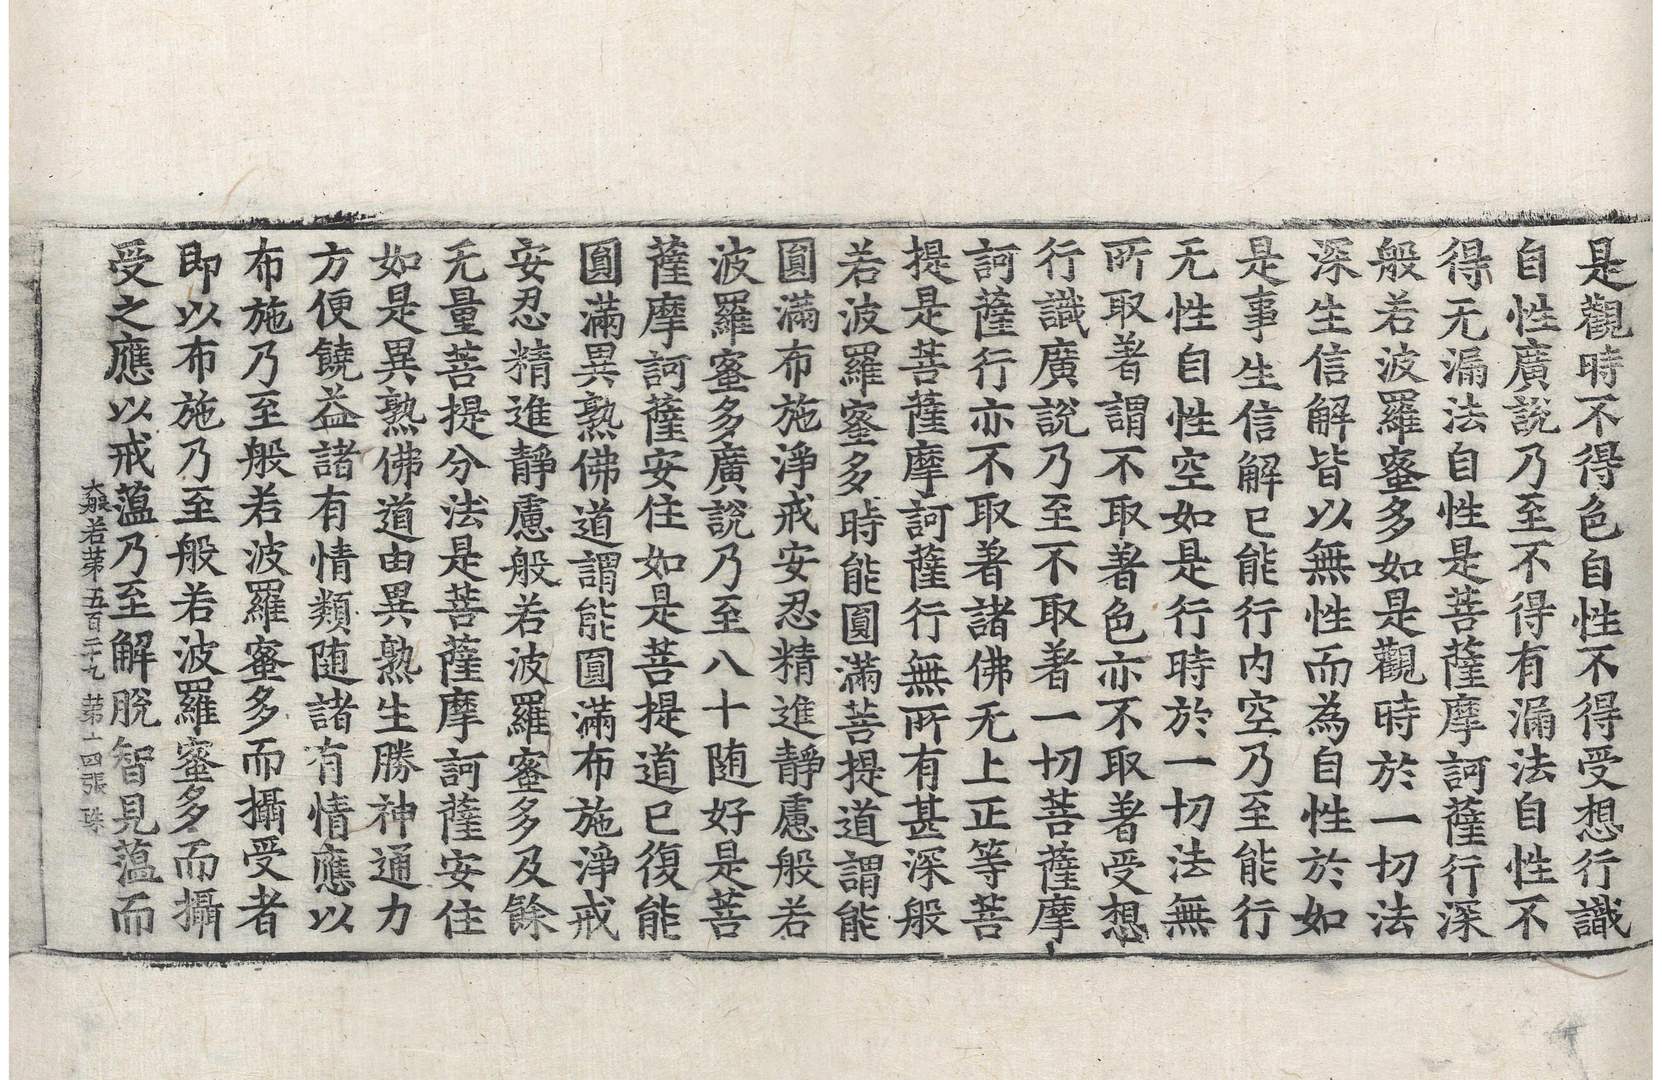 是觀時不得色自性不得受想行識
自性廣說乃至不得有漏法自性不
得无漏法自性是菩薩摩訶薩行深
般若波羅蜜多如是觀時於一切法
深生信解皆以無性而為自性於如
是事生信解已能行內空乃至能行
无性自性空如是行時於一切法無
所取著謂不取著色亦不取著受想
行識廣說乃至不取著一切菩薩摩
訶薩行亦不取著諸佛无上正等菩
提是菩薩摩訶薩行無所有甚深般
若波羅蜜多時能圓滿菩提道謂能
圓滿布施淨戒安忍精進靜慮般若
波羅蜜多廣說乃至八十随好是菩
薩摩訶薩安住如是菩提道已復能
圓滿異熟佛道謂能圓滿布施淨戒
安忍精進靜慮般若波羅蜜多及餘
无量菩提分法是菩薩摩訶薩安住
如是異熟佛道由異熟生勝神通力
方便饒益諸有情類随諸有情應以
布施乃至般若波羅蜜多而攝受者
即以布施乃至般若波羅蜜多而攝
受之應以戒蕴乃至解脫智見蕴而
大般若苐五百二十九 苐十四張 珠